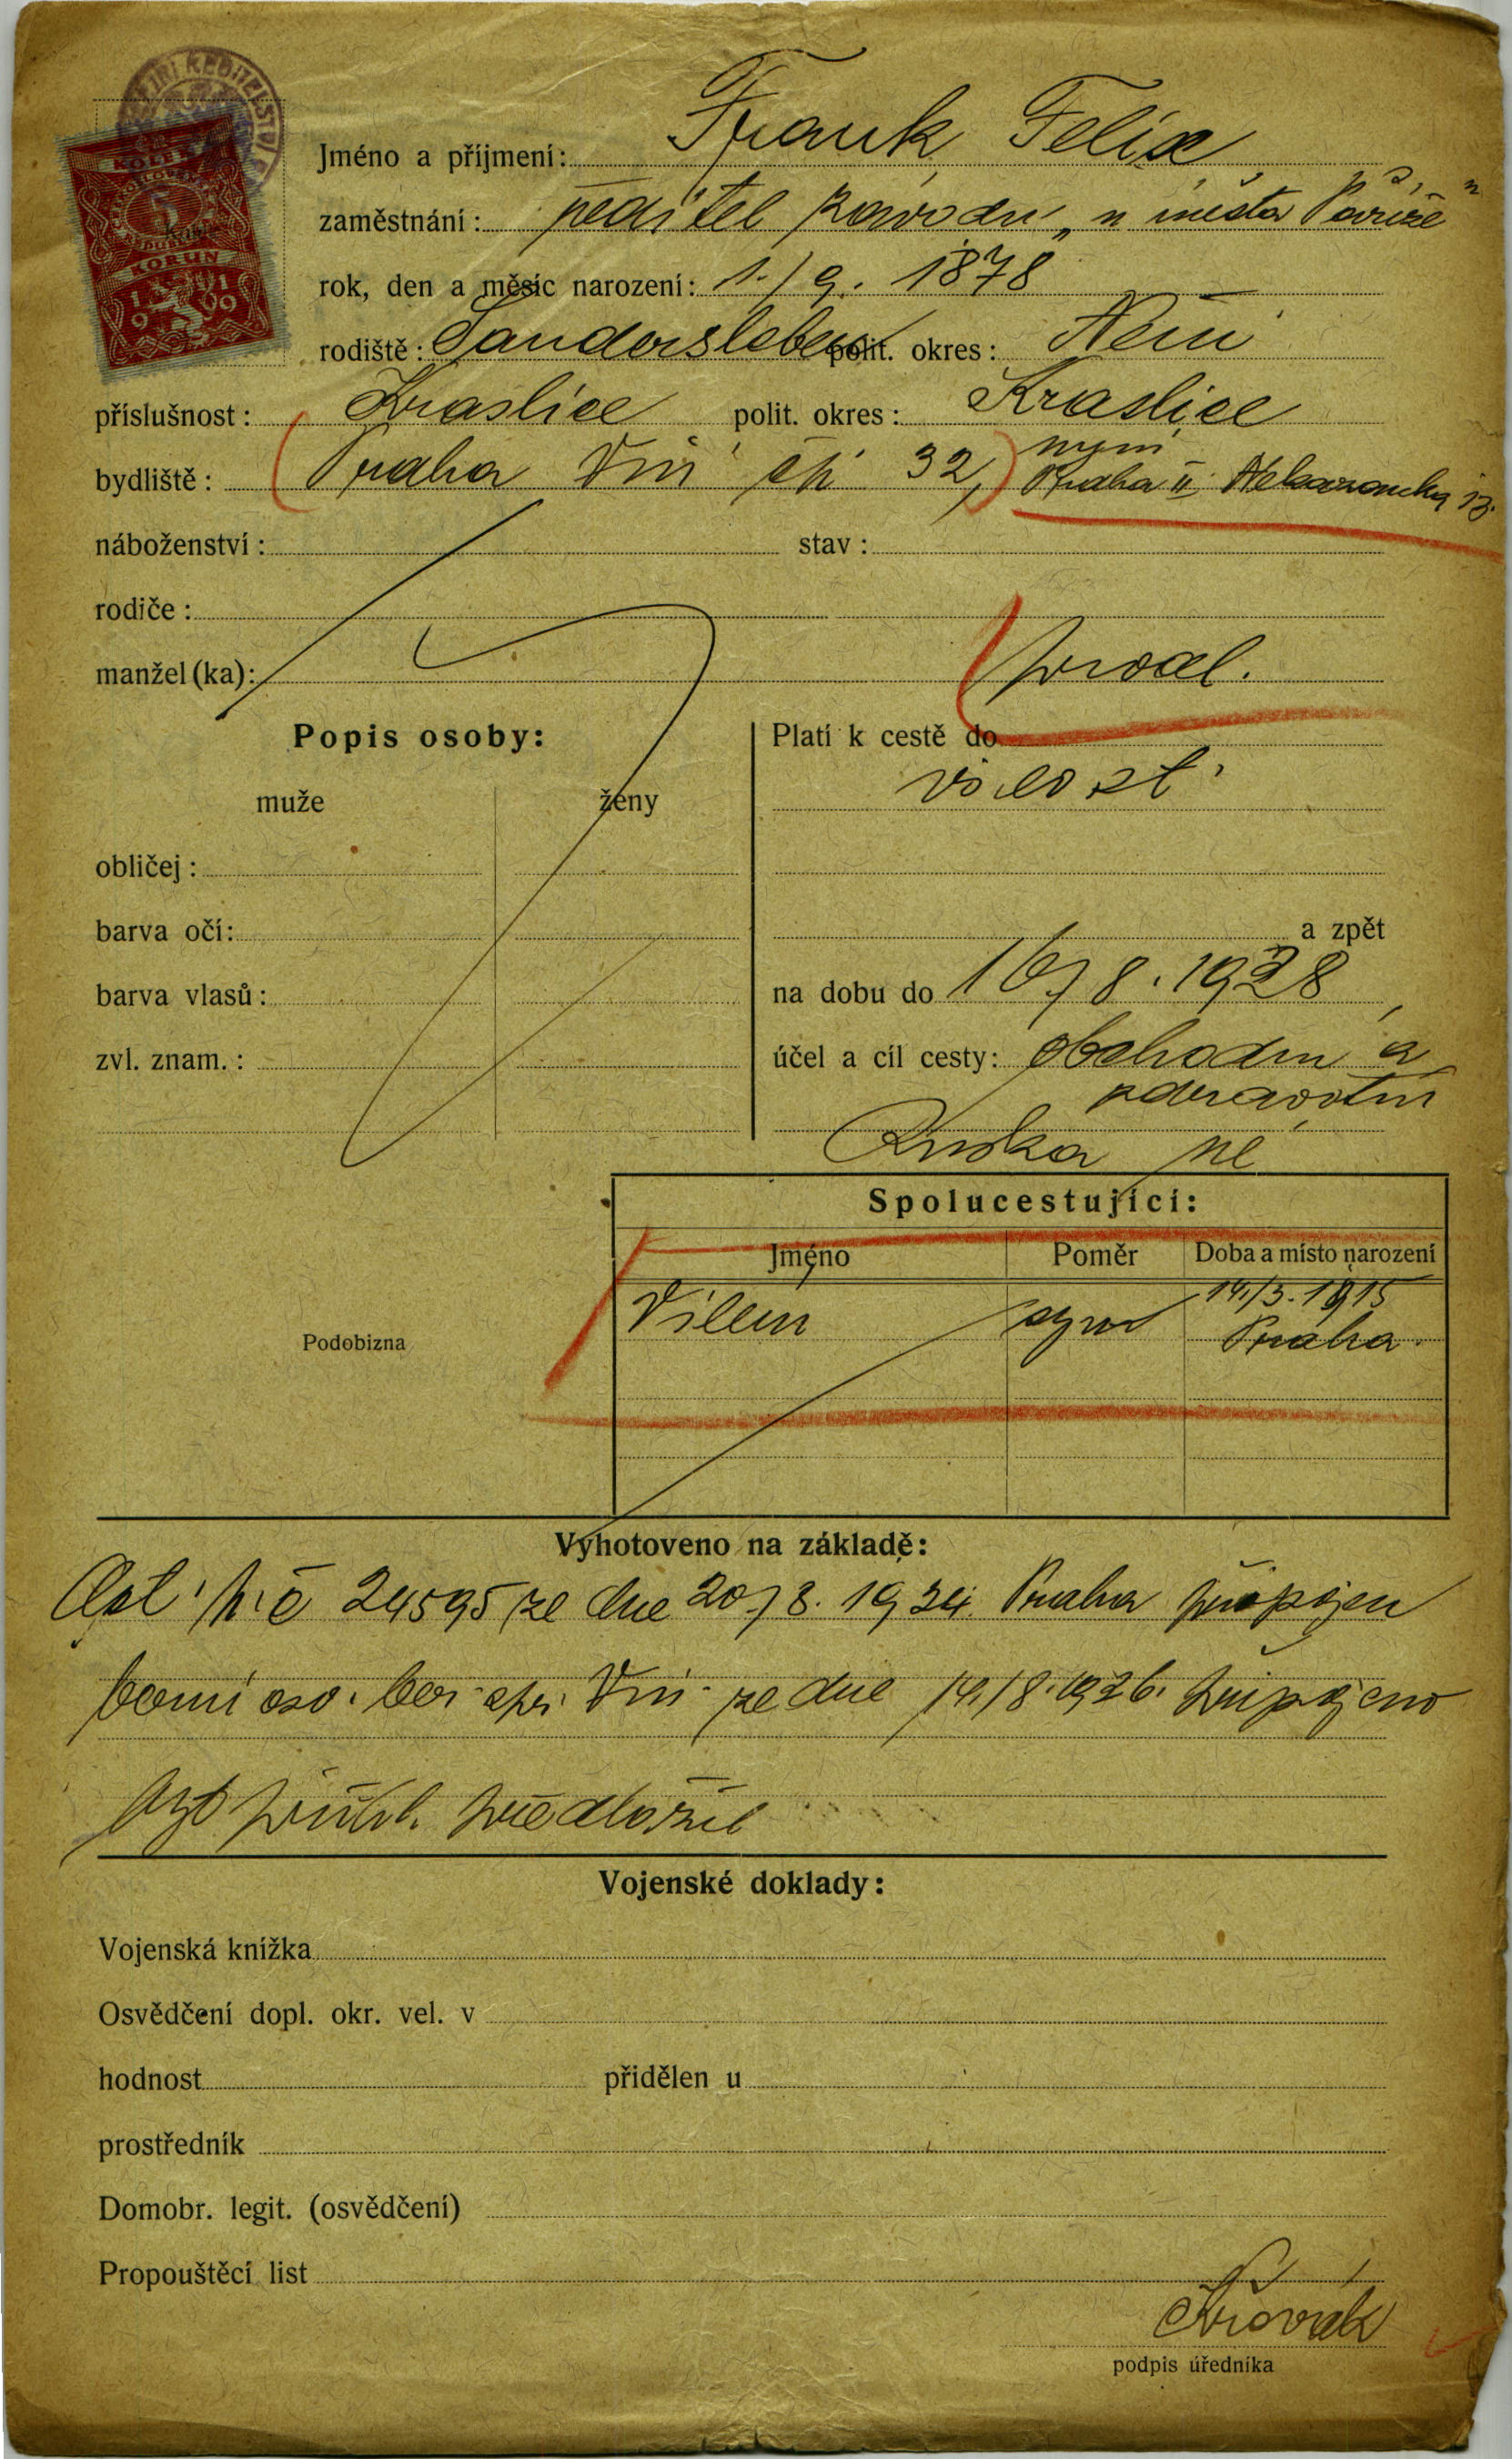 KOLEK
5
KORUN
1919
Jméno a příjmení: Frank Felix
zaměstnání: ředitel závodu „u města Paříže"
rok, den a měsíc narození: 1./9. 1878
rodiště: Sandersleben polit. okres: Něm
příslušnost: Kraslice polit. okres: Kraslice
nyní
bydliště: (Praha VIII čp 32,) Praha II Nekazanka
náboženství: stav:
rodiče:
manžel(ka):
Popis osoby: Platí k cestě do
muže ženy
obličej:
a zpět
barva očí:
barva vlasů: na dobu do 16/8. 1928
zvl. znam.: účel a cíl cesty: obchodní a
zdravotní
Ruska ne
Spolucestující:
Jméno Poměr Doba a místo narození
Vilém syn 14./3. 1915
Praha
Podobizna
Vyhotoveno na základě:
24595 ze dne 20/8. 1924. Praha připojen
ze dne 14./8. 1926. připojeno
předložil
Vojenské doklady:
Vojenská knížka
Osvědčení dopl. okr. vel. v
hodnost přidělen u
prostředník
Domobr. legit. (osvědčení)
Propouštěcí list
podpis úředníka